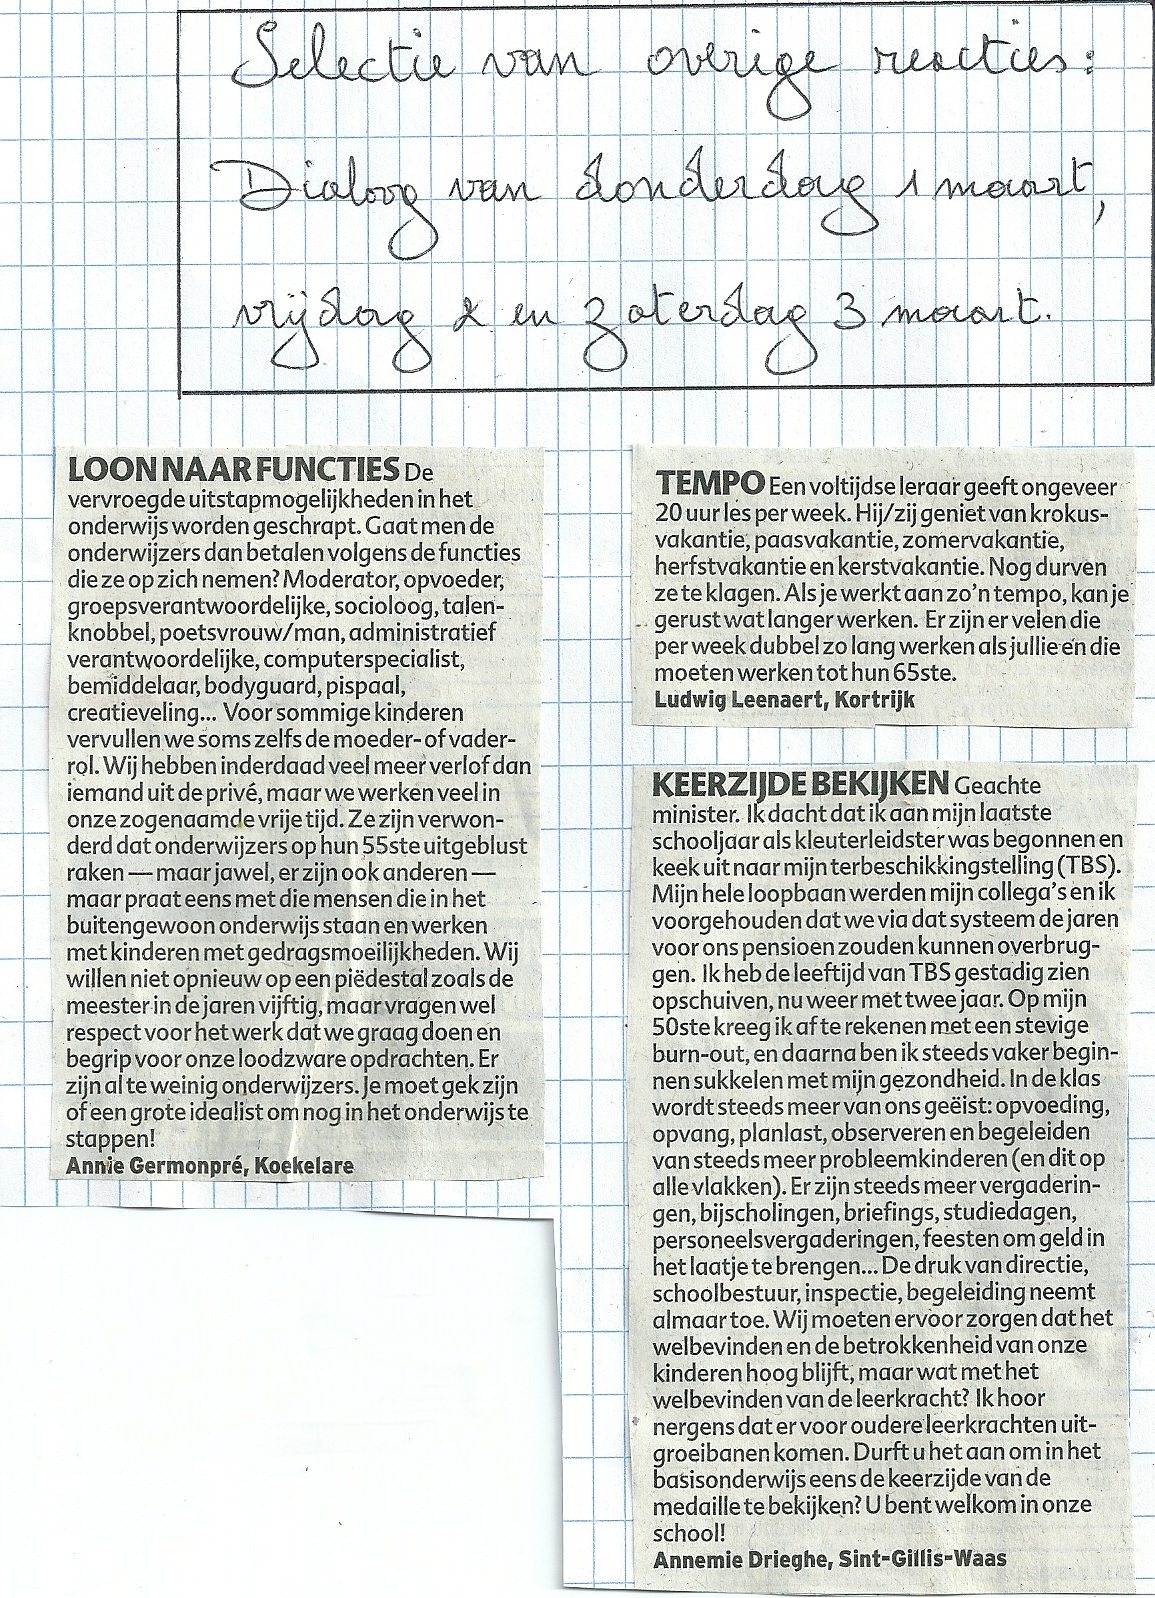 Selectie van overige reacties:
Dialoog van donderdag 1 maart,
vrijdag 2 en zaterdag 3 maart.
LOON NAAR FUNCTIES De
vervroegde uitstapmogelijkheden in het
onderwijs worden geschrapt. Gaat men de
onderwijzers dan betalen volgens de functies
die ze op zich nemen? Moderator, opvoeder,
groepsverantwoordelijke, socioloog, talen-
knobbel, poetsvrouw/man, administratief
verantwoordelijke, computerspecialist,
bemiddelaar, bodyguard, pispaal,
creatieveling... Voor sommige kinderen
vervullen we soms zelfs de moeder- of vader-
rol. Wij hebben inderdaad veel meer verlof dan
iemand uit de privé, maar we werken veel in
onze zogenaamde vrije tijd. Ze zijn verwon-
derd dat onderwijzers op hun 55ste uitgeblust
raken — maar jawel, er zijn ook anderen —
maar praat eens met die mensen die in het
buitengewoon onderwijs staan en werken
met kinderen met gedragsmoeilijkheden. Wij
willen niet opnieuw op een piëdestal zoals de
meester in de jaren vijftig, maar vragen wel
respect voor het werk dat we graag doen en
begrip voor onze loodzware opdrachten. Er
zijn al te weinig onderwijzers. Je moet gek zijn
of een grote idealist om nog in het onderwijs te
stappen!
Annie Germonpré, Koekelare
TEMPO Een voltijdse leraar geeft ongeveer
20 uur les per week. Hij/zij geniet van krokus-
vakantie, paasvakantie, zomervakantie,
herfstvakantie en kerstvakantie. Nog durven
ze te klagen. Als je werkt aan zo'n tempo, kan je
gerust wat langer werken. Er zijn er velen die
per week dubbel zo lang werken als jullie en die
moeten werken tot hun 65ste.
Ludwig Leenaert, Kortrijk
KEERZIJDE BEKIJKEN Geachte
minister. Ik dacht dat ik aan mijn laatste
schooljaar als kleuterleidster was begonnen en
keek uit naar mijn terbeschikkingstelling (TBS).
Mijn hele loopbaan werden mijn collega's en ik
voorgehouden dat we via dat systeem de jaren
voor ons pensioen zouden kunnen overbrug-
gen. Ik heb de leeftijd van TBS gestadig zien
opschuiven, nu weer met twee jaar. Op mijn
50ste kreeg ik af te rekenen met een stevige
burn-out, en daarna ben ik steeds vaker begin-
nen sukkelen met mijn gezondheid. In de klas
wordt steeds meer van ons geëist: opvoeding,
opvang, planlast, observeren en begeleiden
van steeds meer probleemkinderen (en dit op
alle vlakken). Er zijn steeds meer vergaderin-
gen, bijscholingen, briefings, studiedagen,
personeelsvergaderingen, feesten om geld in
het laatje te brengen... De druk van directie,
schoolbestuur, inspectie, begeleiding neemt
almaar toe. Wij moeten ervoor zorgen dat het
welbevinden en de betrokkenheid van onze
kinderen hoog blijft, maar wat met het
welbevinden van de leerkracht? Ik hoor
nergens dat er voor oudere leerkrachten uit-
groeibanen komen. Durft u het aan om in het
basisonderwijs eens de keerzijde van de
medaille te bekijken? U bent welkom in onze
school!
Annemie Drieghe, Sint-Gillis-Waas